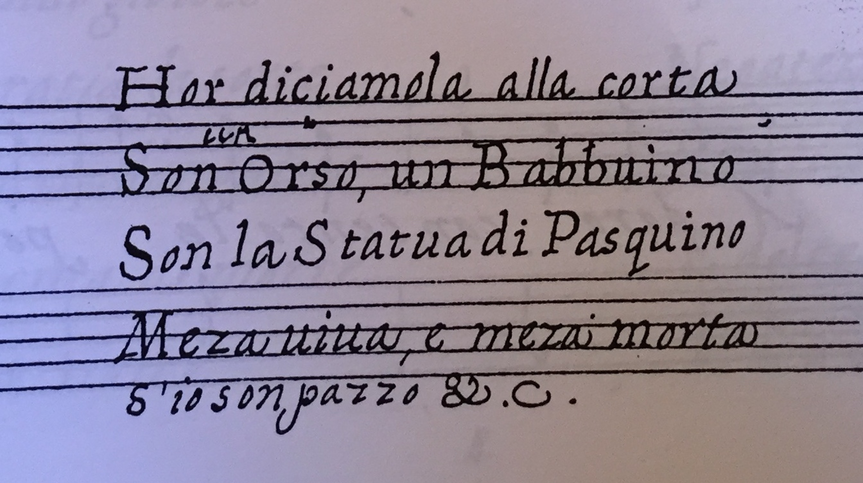 Hor diciamola alla corta
un
Son Orso, un Babbuino
Son la Statua di Pasquino
Meza uiua, e meza morta
S'io son pazzo &. C.